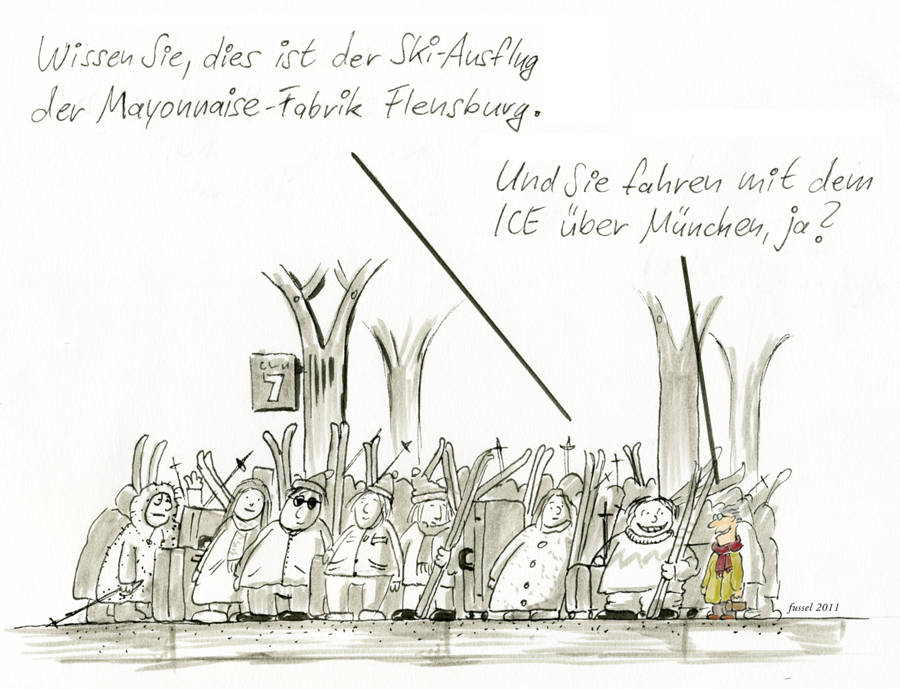 Wissen Sie, dies ist der Ski-Ausflug
der Mayonnaise-Fabrik Flensburg.
Und Sie fahren mit dem
ICE über München, ja?
7
fussel 2011